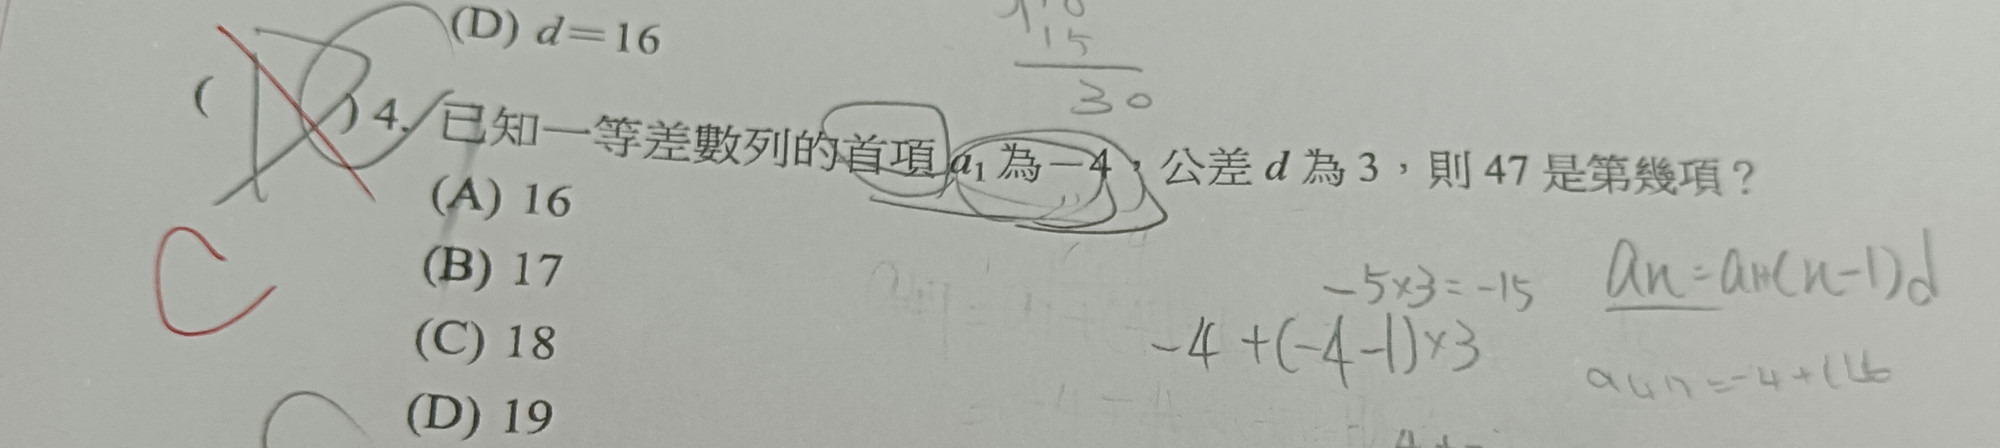 (D) d=16
15
30
( D ) 4. 已知一等差數列的首項 a₁ 為 −4，公差 d 為 3，則 47 是第幾項？
(A) 16
(B) 17
(C) 18
(D) 19
C
−5×3=−15
an=a1+(n−1)d
−4+(−4−1)×3